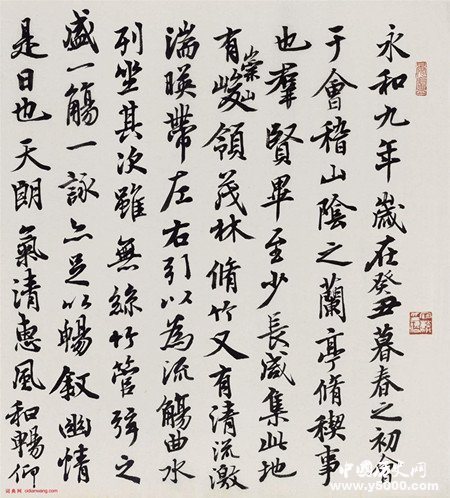 永和九年歲在癸丑暮春之初會
于會稽山陰之蘭亭脩稧事
也羣賢畢至少長咸集此地
有崇山峻領茂林脩竹又有清流激
湍暎帶左右引以為流觴曲水
列坐其次雖無絲竹管弦之
盛一觴一詠亦足以暢叙幽情
是日也天朗氣清惠風和暢仰
词典网 cidianwang.com
www.y5000.com